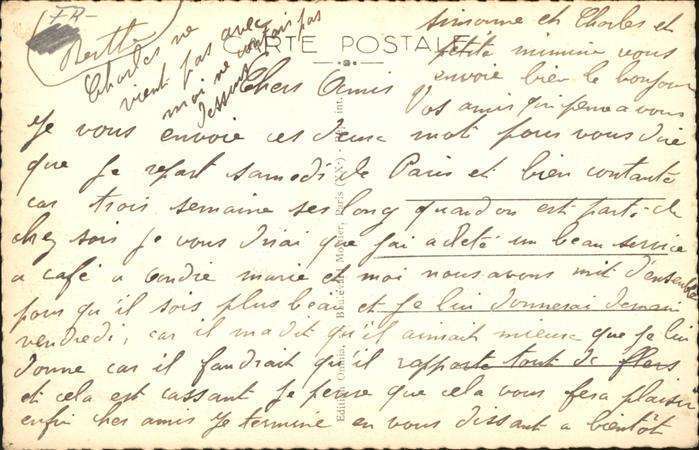 FR-
CARTE POSTALE
Chers Amis
Je vous envoie ces deux mot pour vous dire
que je repart samedi de Paris et bien contante
car trois semaine ses long quandon est parti de
chez sois je vous dirai que j'ai acheté un beau service
a café a andre marie et moi nous avons mit d'ensemble
pour qu'il sois plus beau et je lui donnerai demain
vendredi, car il m'a dit qu'il aimait mieux que je lui
donne car il faudrait qu'il rapporte tout de flers
et cela est cassant je pense que cela vous fera plaisir
enfin cher amis je termine en vous dissant a bientôt
simonne et Charles et
petite mimine vous
envoie bien le bonjour
Vos amis qui pense a vous
Charles ne
vient pas avec
moi ne contais pas
dessus
Paris